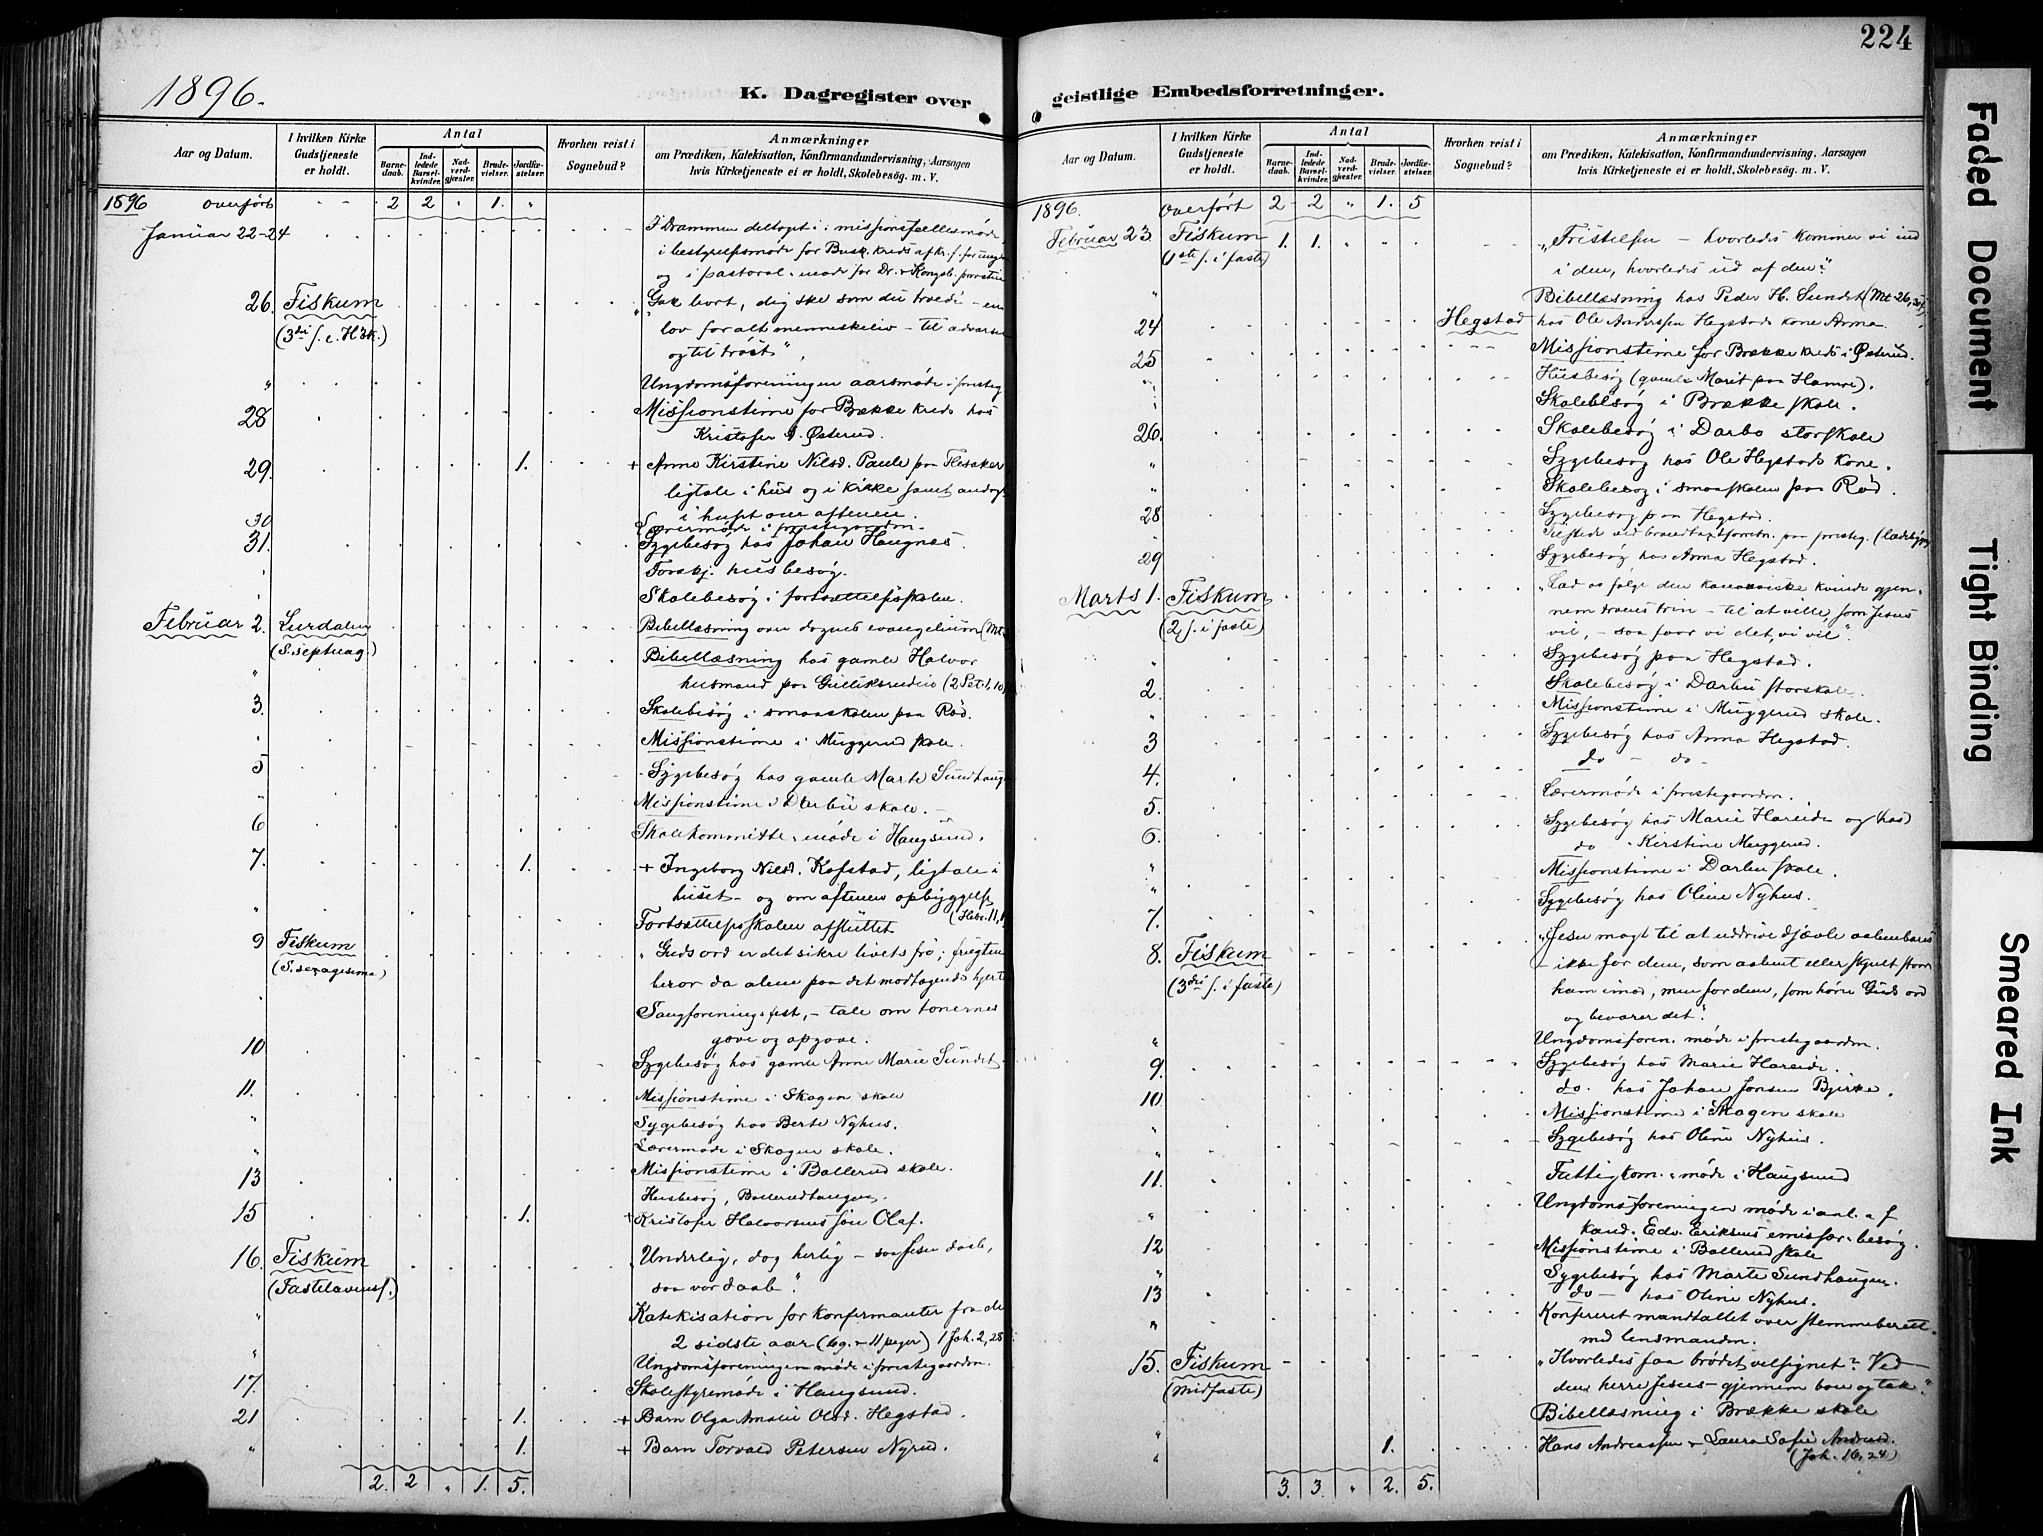 1896.
K. Dagregister over
Aar og Datum.
I hvilken Kirke Gudstjeneste er holdt.
Antal
Barne-daab.
Ind-ledede Barsel-kvinder.
Nad-verd-gjæster.
Brude-vielser.
Jordfæ-stelser.
Hvorhen reist i Sognebud?
Anmærkninger
om Prædiken, Katekisation, Konfirmandundervisning, Aarsagen
hvis Kirketjeneste ei er holdt, Skolebesøg. m. V.
1896 overført 2 2 " 1. "
Januar 22-24 I Drammen deltaget i missionsfællesmøde,
i bestyrelsesmøde for Busk. kreds af kr. f. for ungd
og i pastoral-møde for Dr. & Kongsb. provstier
26. Fiskum "Gak bort, dig ske som du troede - en
(3die s. e. H3k.) lov for alt menneskeliv - til advarsel
og til trøst",
" Ungdomsforeningen aarsmøde i presteg
28 Missionstime for Brække kreds hos
Kristofer Østerud.
29. 1. + Anne Kirstine Nilsd. Paule paa Flesaker
ligtale i hus og i kirke samt andagt
i huset om aftenen.
30 Lærermøde i prestegaarden.
31. Sygebesøg hos Johan Haugnæs.
Forskj. husbesøg.
Skolebesøg i fortsættelsesskolen.
Februar 2. Lurdalen Bibellæsning over dagens evangelium (Mt.
(S. septuag.) Bibellæsning hos gamle Halvor
" husmand paa Gulliksrudeie (2 Pet. 1, 10
3. Skolebesøg i smaaskolen paa Rød.
Missionstime i Muggerud skole.
5 Sygebesøg hos gamle Marte Sundhaugen
" Missionstime i Darbu skole.
6 Skolekommitte-møde i Haugsund.
7. 1. + Ingeborg Nilsd. Kofstad, ligtale i
huset - og om aftenen opbyggelse
(Hebr. 11,
" Fortsættelsesskolen afsluttet
9 Fiskum "Guds ord er det sikre livets frø; frugten
(S. sexagesima) beror da alene paa det modtagende hjerte
Sangforeningsfest, - tale om tonernes
gave og opgave.
10 Sygebesøg hos gamle Anne Marie Sundet
11. Missionstime i Skogen skole
" Sygebesøg hos Berte Nyhus.
" Lærermøde i Skogen skole.
13 Missionstime i Ballerud skole.
Husbesøg, Ballerudhaugen.
15 1. + Kristofer Halvorsens søn Olaf.
16. Fiskum "Underlig, dog herlig - saa Jesu daab,
(Fastelavenss.) saa vor daab."
" Katekisation for konfirmanter fra de
2 sidste aar (6 g. & 11 piger) 1 Joh. 2, 28
" Ungdomsforeningen møde i prestegaarden.
17. Skolestyremøde i Haugsund.
21 1. + Barn Olga Amalie Olsd. Hegstad.
" 1. + Barn Torvald Petersen Nyrud.
2. 2 " 1. 5.
224
geistlige Embedsforretninger.
Aar og Datum.
I hvilken Kirke Gudstjeneste er holdt.
Antal
Barne-daab.
Ind-ledede Barsel-kvinder.
Nad-verd-gjæster.
Brude-vielser.
Jordfæ-stelser.
Hvorhen reist i Sognebud?
Anmærkninger
om Prædiken, Katekisation, Konfirmandundervisning, Aarsagen
hvis Kirketjeneste ei er holdt, Skolebesøg. m. V.
1896. Overført 2 2 " 1. 5
Februar 23. Fiskum 1. 1. "Fristelsen - hvorledes kommer vi ind
(1ste s. i faste) i den, hvorledes ud af den?"
" Bibellæsning hos Peder H. Sundet (Mt. 26,
24 Hegstad hos Ole Anderssen Hegstads kone Anna.
25 Missionstime for Brække kreds i Østerud.
" Husbesøg (gamle Marit paa Hamre).
Skolebesøg i Brække skole.
26. Skolebesøg i Darbo storskole
" Sygebesøg hos Ole Hegstads kone.
" Skolebesøg i smaaskolen paa Rød.
28 Sygebesøg paa Hegstad.
Tilstede ved brandtaxtforretn. paa presteg.
29 Sygebesøg hos Anna Hegstad.
Marts 1. Fiskum "Lad os følge den kanaanæiske kvinde gjen-
(2. s. i faste) nem troens trin - til at ville, som Jesus
vil, - saa faar vi det, vi vil".
" Sygebesøg paa Hegstad.
2. Skolebesøg i Darbu storskole.
" Missionstime i Muggerud skole.
3 Sygebesøg hos Anna Hegstad.
4. do - do -
5. Lærermøde i prestegaarden.
6. Sygebesøg hos Marie Hareide og (hos)
do Kirstine Muggerud.
" Missionstime i Darbu skole.
7. Sygebesøg hos Oline Nyhus.
8. Fiskum "Jesu magt til at uddrive djævle aabenbares
(3die s. i faste) - ikke for dem, som aabent eller skjult staar
ham imod, men for dem, som høre Guds ord
og bevarer det".
" Ungdomsforen. møde i prestegaarden.
9. Sygebesøg hos Marie Hareide.
10 do. hos Johan Jonsen Bjerke.
" Missionstime i Skogen skole
" Sygebesøg hos Oline Nyhus.
11. Fattigkom.-møde i Haugsund
" Ungdomsforeningen møde i anl. af
kand. Edv. Eriksens emissær-besøg.
12 Missionstime i Ballerud skole
" Sygebesøg hos Marte Sundhaugen.
13 do - hos Oline Nyhus.
" Konfereret mandtallet over stemmeberett.
med lensmanden.
15. Fiskum "Hvorledes faa brødet velsignet? Ved
(Midfaste) den herre Jesus - gjennem bøn og tak."
" Bibellæsning i Brække skole
" 1. Hans Andreassen & Laura Sofie Andersd.
(Joh. 16, 24)
3. 3. " 2. 5.
Faded Document
Tight Binding
Smeared Ink